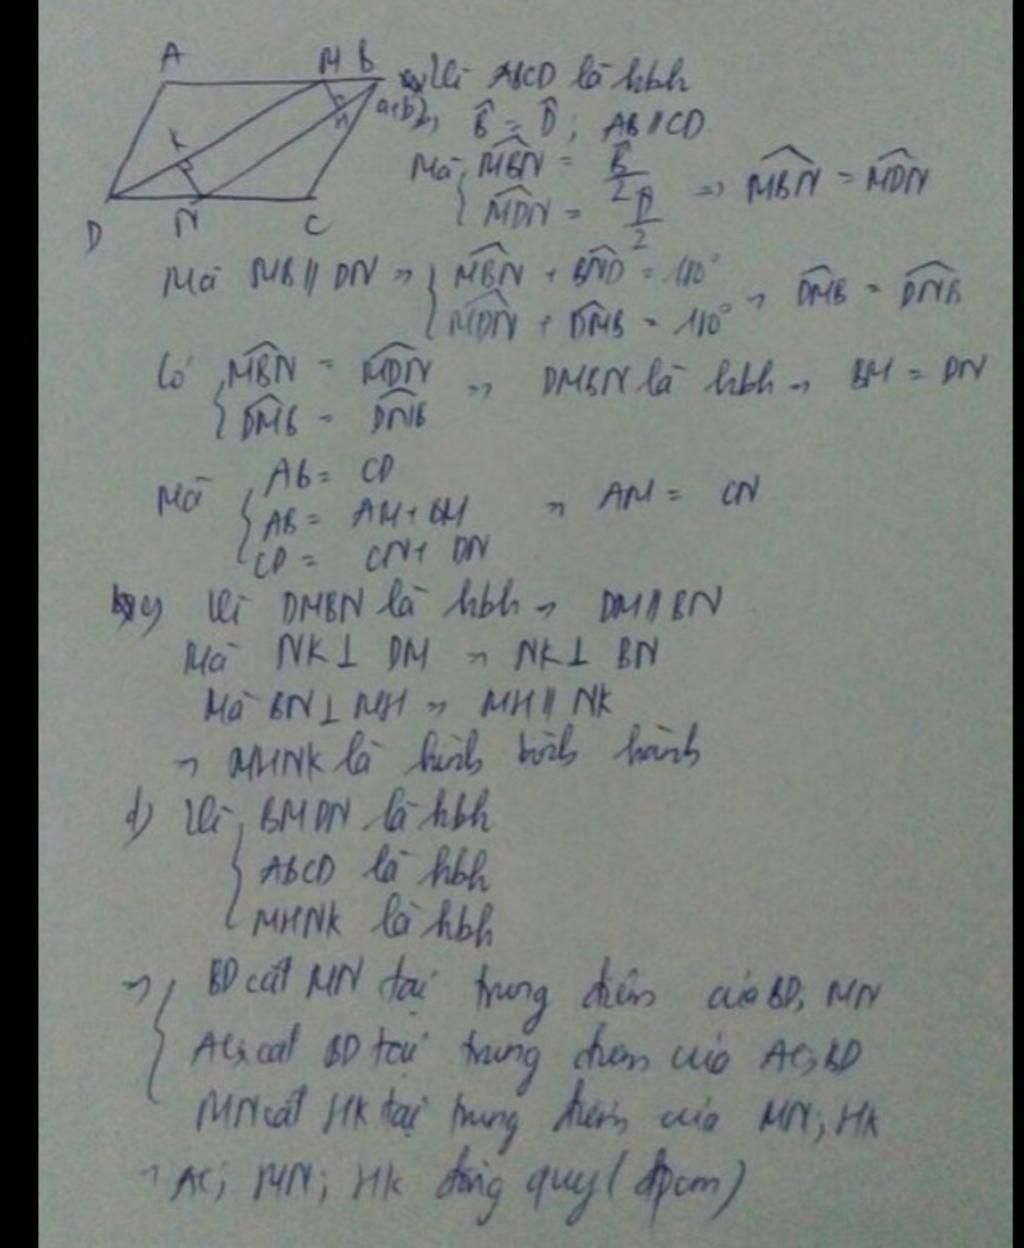 A M B
K H
D N C
a+b) Vì ABCD là hbh
=> B̂ = D̂ ; AB // CD
Mà { MBN = B̂/2
MDN = D̂/2 => MBN = MDN
Mà MB // DN => { MBN + BND = 180°
MDN + DMB = 180° => DMB = DNB
Có { MBN = MDN
DMB = DNB => DMBN là hbh => BM = DN
Mà { AB = CD
AB = AM + BM => AM = CN
CD = CN + DN
c) Vì DMBN là hbh => DM // BN
Mà NK ⊥ DM => NK ⊥ BN
Mà BN ⊥ MH => MH // NK
=> MHNK là hình bình hành
d) Vì { BMDN là hbh
ABCD là hbh
MHNK là hbh
=> { BD cắt MN tại trung điểm của BD, MN
AC cắt BD tại trung điểm của AC, BD
MN cắt HK tại trung điểm của MN; HK
=> AC; MN; HK đồng quy (đpcm)